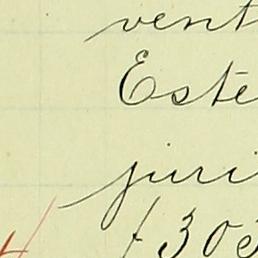 vent
Este
juri
(303